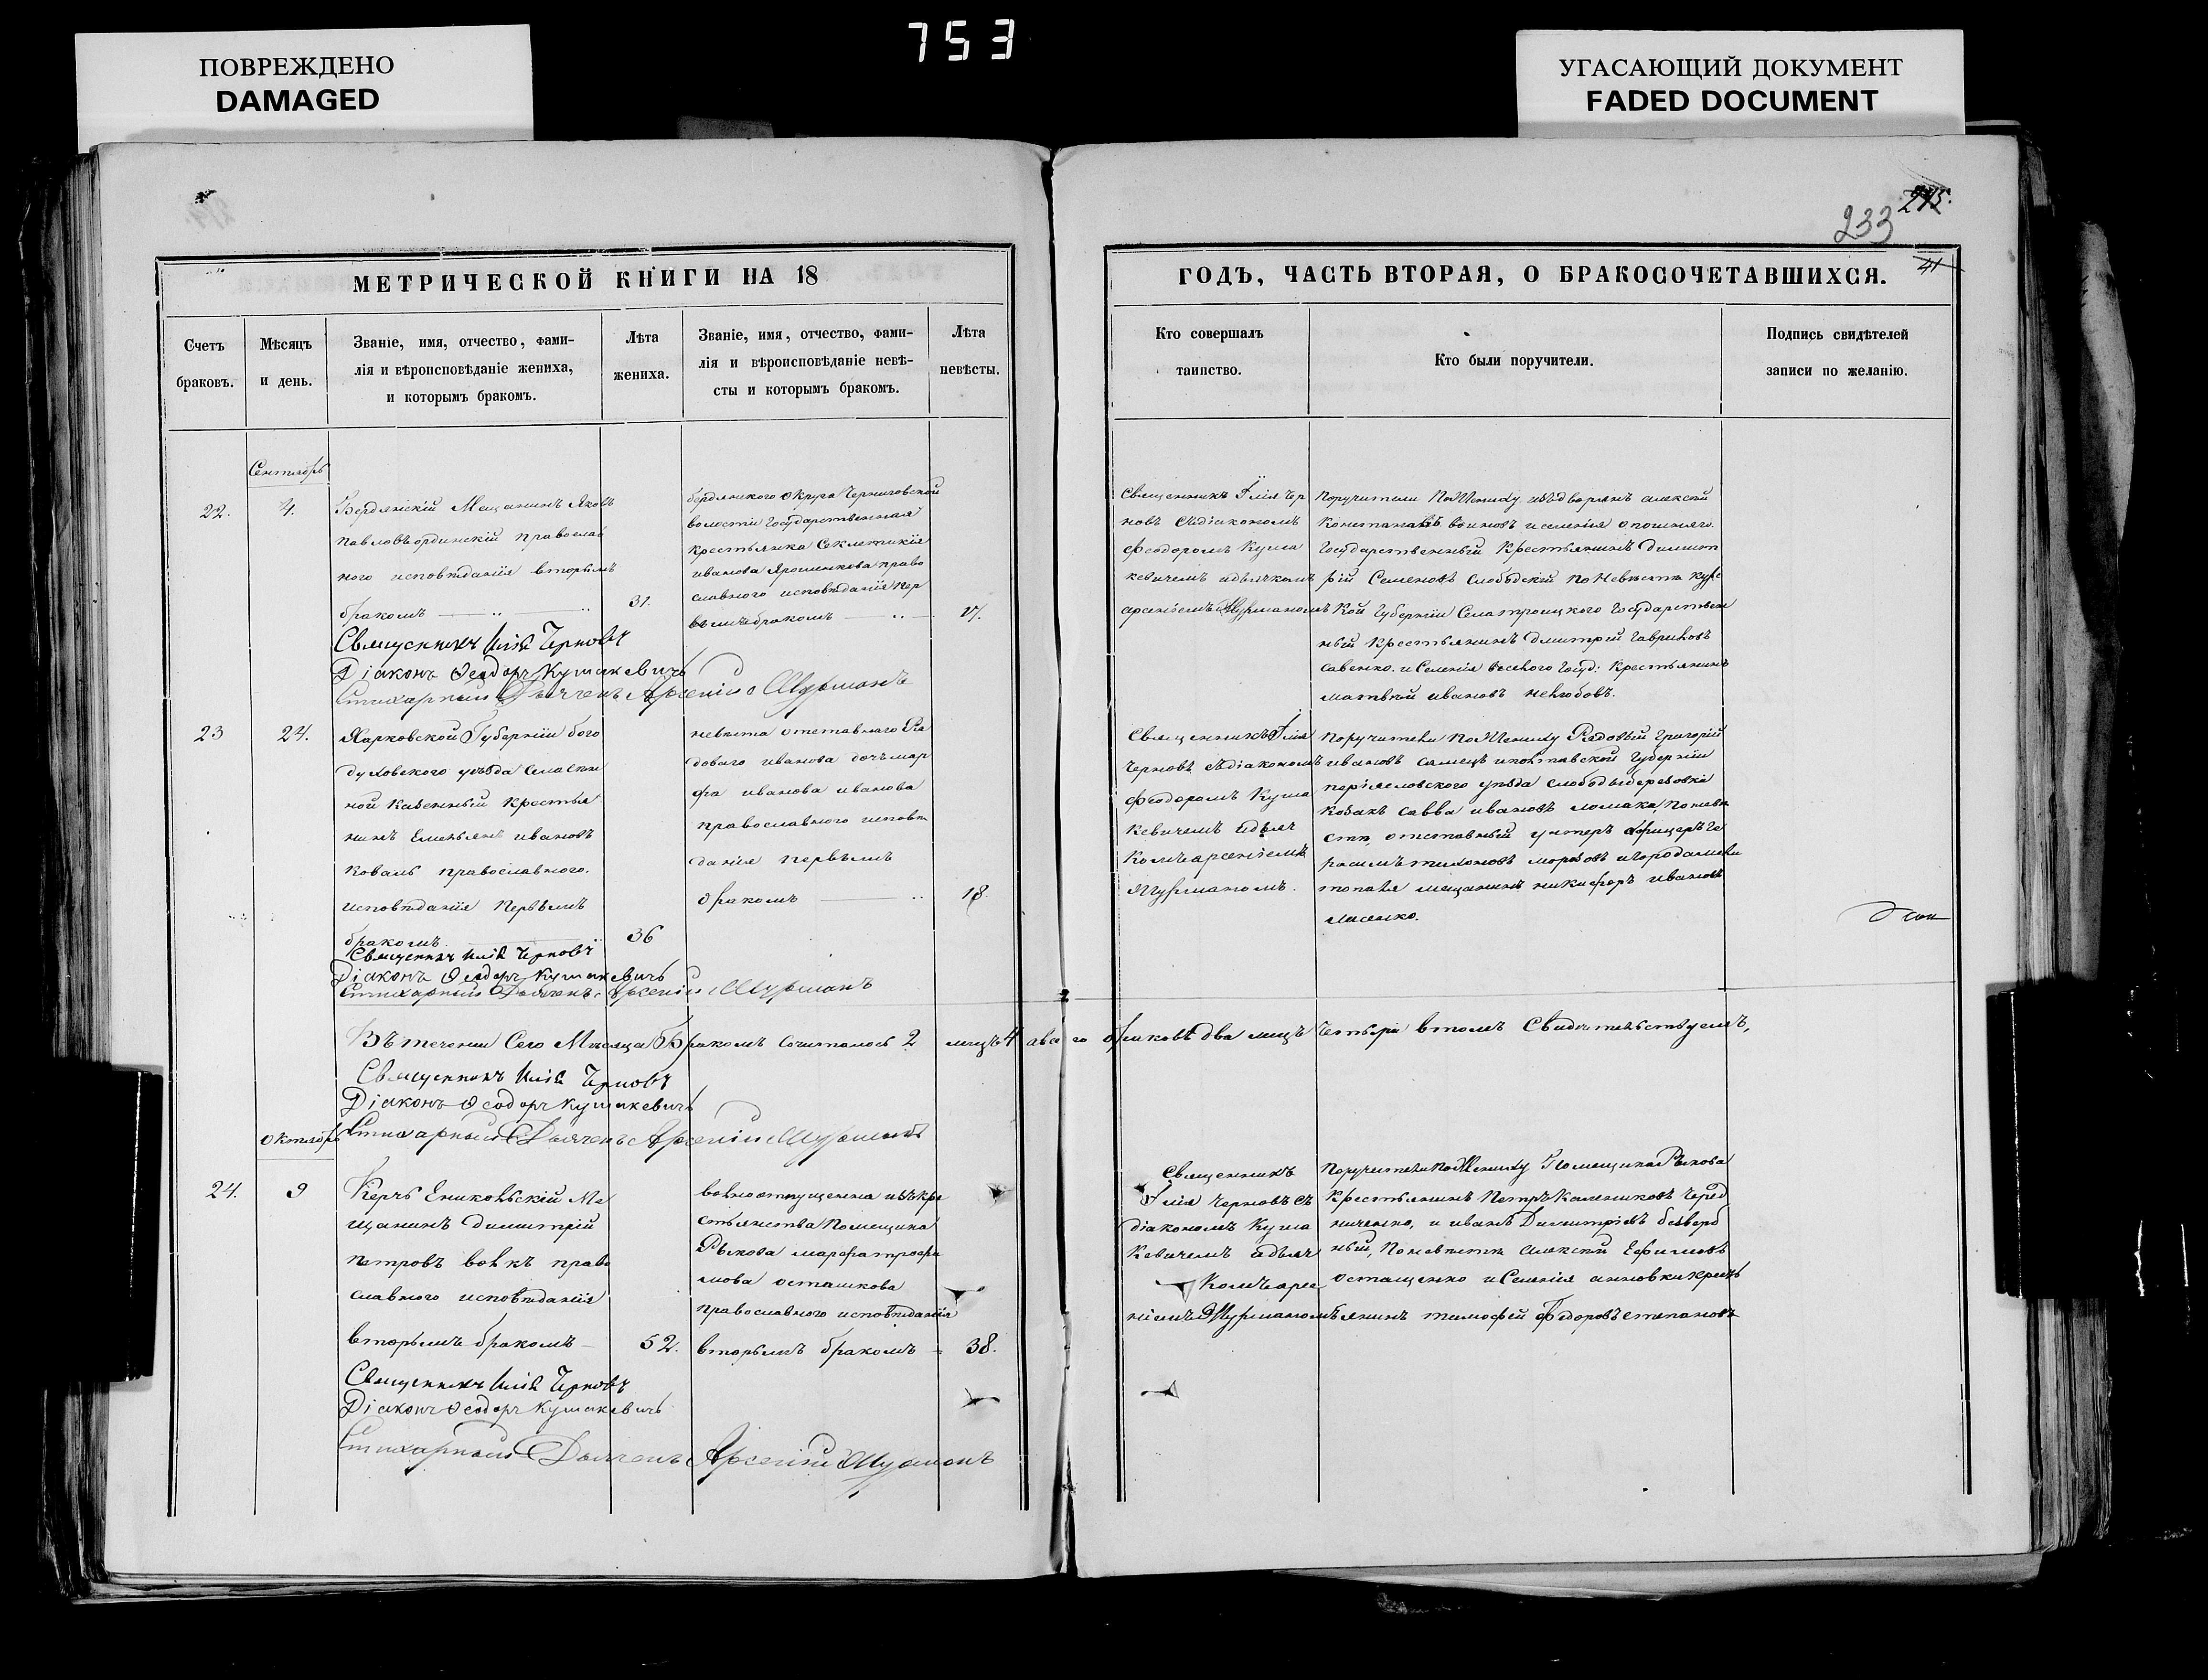 753
ПОВРЕЖДЕНО
DAMAGED
УГАСАЮЩИЙ ДОКУМЕНТ
FADED DOCUMENT
233
215.
41
МЕТРИЧЕСКОЙ КНИГИ НА 18
Счетъ
браковъ.
Мѣсяцъ
и день.
Званіе, имя, отчество, фами-
лія и вѣроисповѣданіе жениха,
и которымъ бракомъ.
Лѣта
жениха.
Званіе, имя, отчество, фами-
лія и вѣроисповѣданіе невѣ-
сты и которымъ бракомъ.
Лѣта
невѣсты.
ГОДЪ, ЧАСТЬ ВТОРАЯ, О БРАКОСОЧЕТАВШИХСЯ.
Кто совершалъ
таинство.
Кто были поручители.
Подпись свидѣтелей
записи по желанію.
Сентябрь
22.
4.
Бердянскій Мещанинъ Яковъ
Павловъ ординскій православ
ного исповѣданія вторымъ
бракомъ
31.
бердянского округа Черниговской
волости Государственная
крестьянка Секлетикія
иванова Ярошенкова право
славного исповѣданія пер
вымъ бракомъ
17.
Священникъ Илія Чер
новъ съдіакономъ
Феодоромъ Куша
кевичемъ идьячкомъ
арсеніемъ Шурманомъ
Поручители по Жениху изъ дворянъ алексей
воиновъ и селенія
Государственный Крестьянинъ Димит
рій Семеновъ Слободскій по Невѣсте Курс
кой Губерніи Села троицкого Государствен
ный Крестьянинъ Дмитрій Гавриловъ
савенко. и Селенія Государ. Крестьянинъ
матвѣй ивановъ
Священникъ Илія Черновъ
Діаконъ Ѳеодоръ Кушакевичъ
Стихарный Дьячекъ Арсеній Шурманъ
23
24.
Харковской Губерніи бого
духовского уѣзда
казенный крестья
нинъ Емельянъ ивановъ
Коваль православного.
исповѣданія Первымъ
бракомъ
36
невѣста отставнаго Ря
доваго иванова дочь мар
фа иванова иванова
православного исповѣ
данія первымъ
бракомъ
18.
Священникъ Илія
Черновъ съдіакономъ
Феодоромъ Куша
кевичемъ идьяч
комъ арсеніемъ
Шурманомъ.
поручители по Жениху Рядовый Григорій
ивановъ и полтавской Губерніи
періясловского уѣзда слободы березовки
козакъ савва ивановъ ломака по невѣ
сте, отставный унтеръ офицеръ Ге
расимъ тихоновъ морозовъ игорода
мещанинъ никифоръ ивановъ
лисенко.
Священникъ Илія Черновъ
Діаконъ Ѳеодоръ Кушакевичъ
Стихарный Дьячекъ Арсеній Шурманъ
Въ теченіи Сего Мѣсяца Бракомъ Сочиталось 2 лицъ 4 авсего браковъ два лицъ Четыри втомъ Свидѣтельствуемъ,
Священникъ Илія Черновъ
Діаконъ Ѳеодоръ Кушакевичъ
Стихарный Дьячекъ Арсеній Шурманъ
октябрь
24.
9
Керчь Ениколскій Ме
щанинъ Димитрій
Петровъ волкъ право
славного исповѣданія
вторымъ бракомъ
52.
волно отпущенна изъ кре
стьянства Помещика
Рыкова марфа трофи
мова осташкова
православного исповѣданія
вторымъ бракомъ
38.
Священникъ
Илія Черновъ съ
діакономъ Куша
кевичемъ идьяч
комъ арсе
ніемъ Шурманомъ
Поручители по Жениху Помещика Рыкова
крестьянинъ Петръ Калениковъ Черед
ниченко, и иванъ Димитріевъ безверб
ный, По невѣсте алексей Ефимовъ
остащенко и Селенія анновки крест
янинъ тимофей Федоровъ степановъ
Священникъ Илія Черновъ
Діаконъ Ѳеодоръ Кушакевичъ
Стихарный Дьячекъ Арсеній Шурманъ